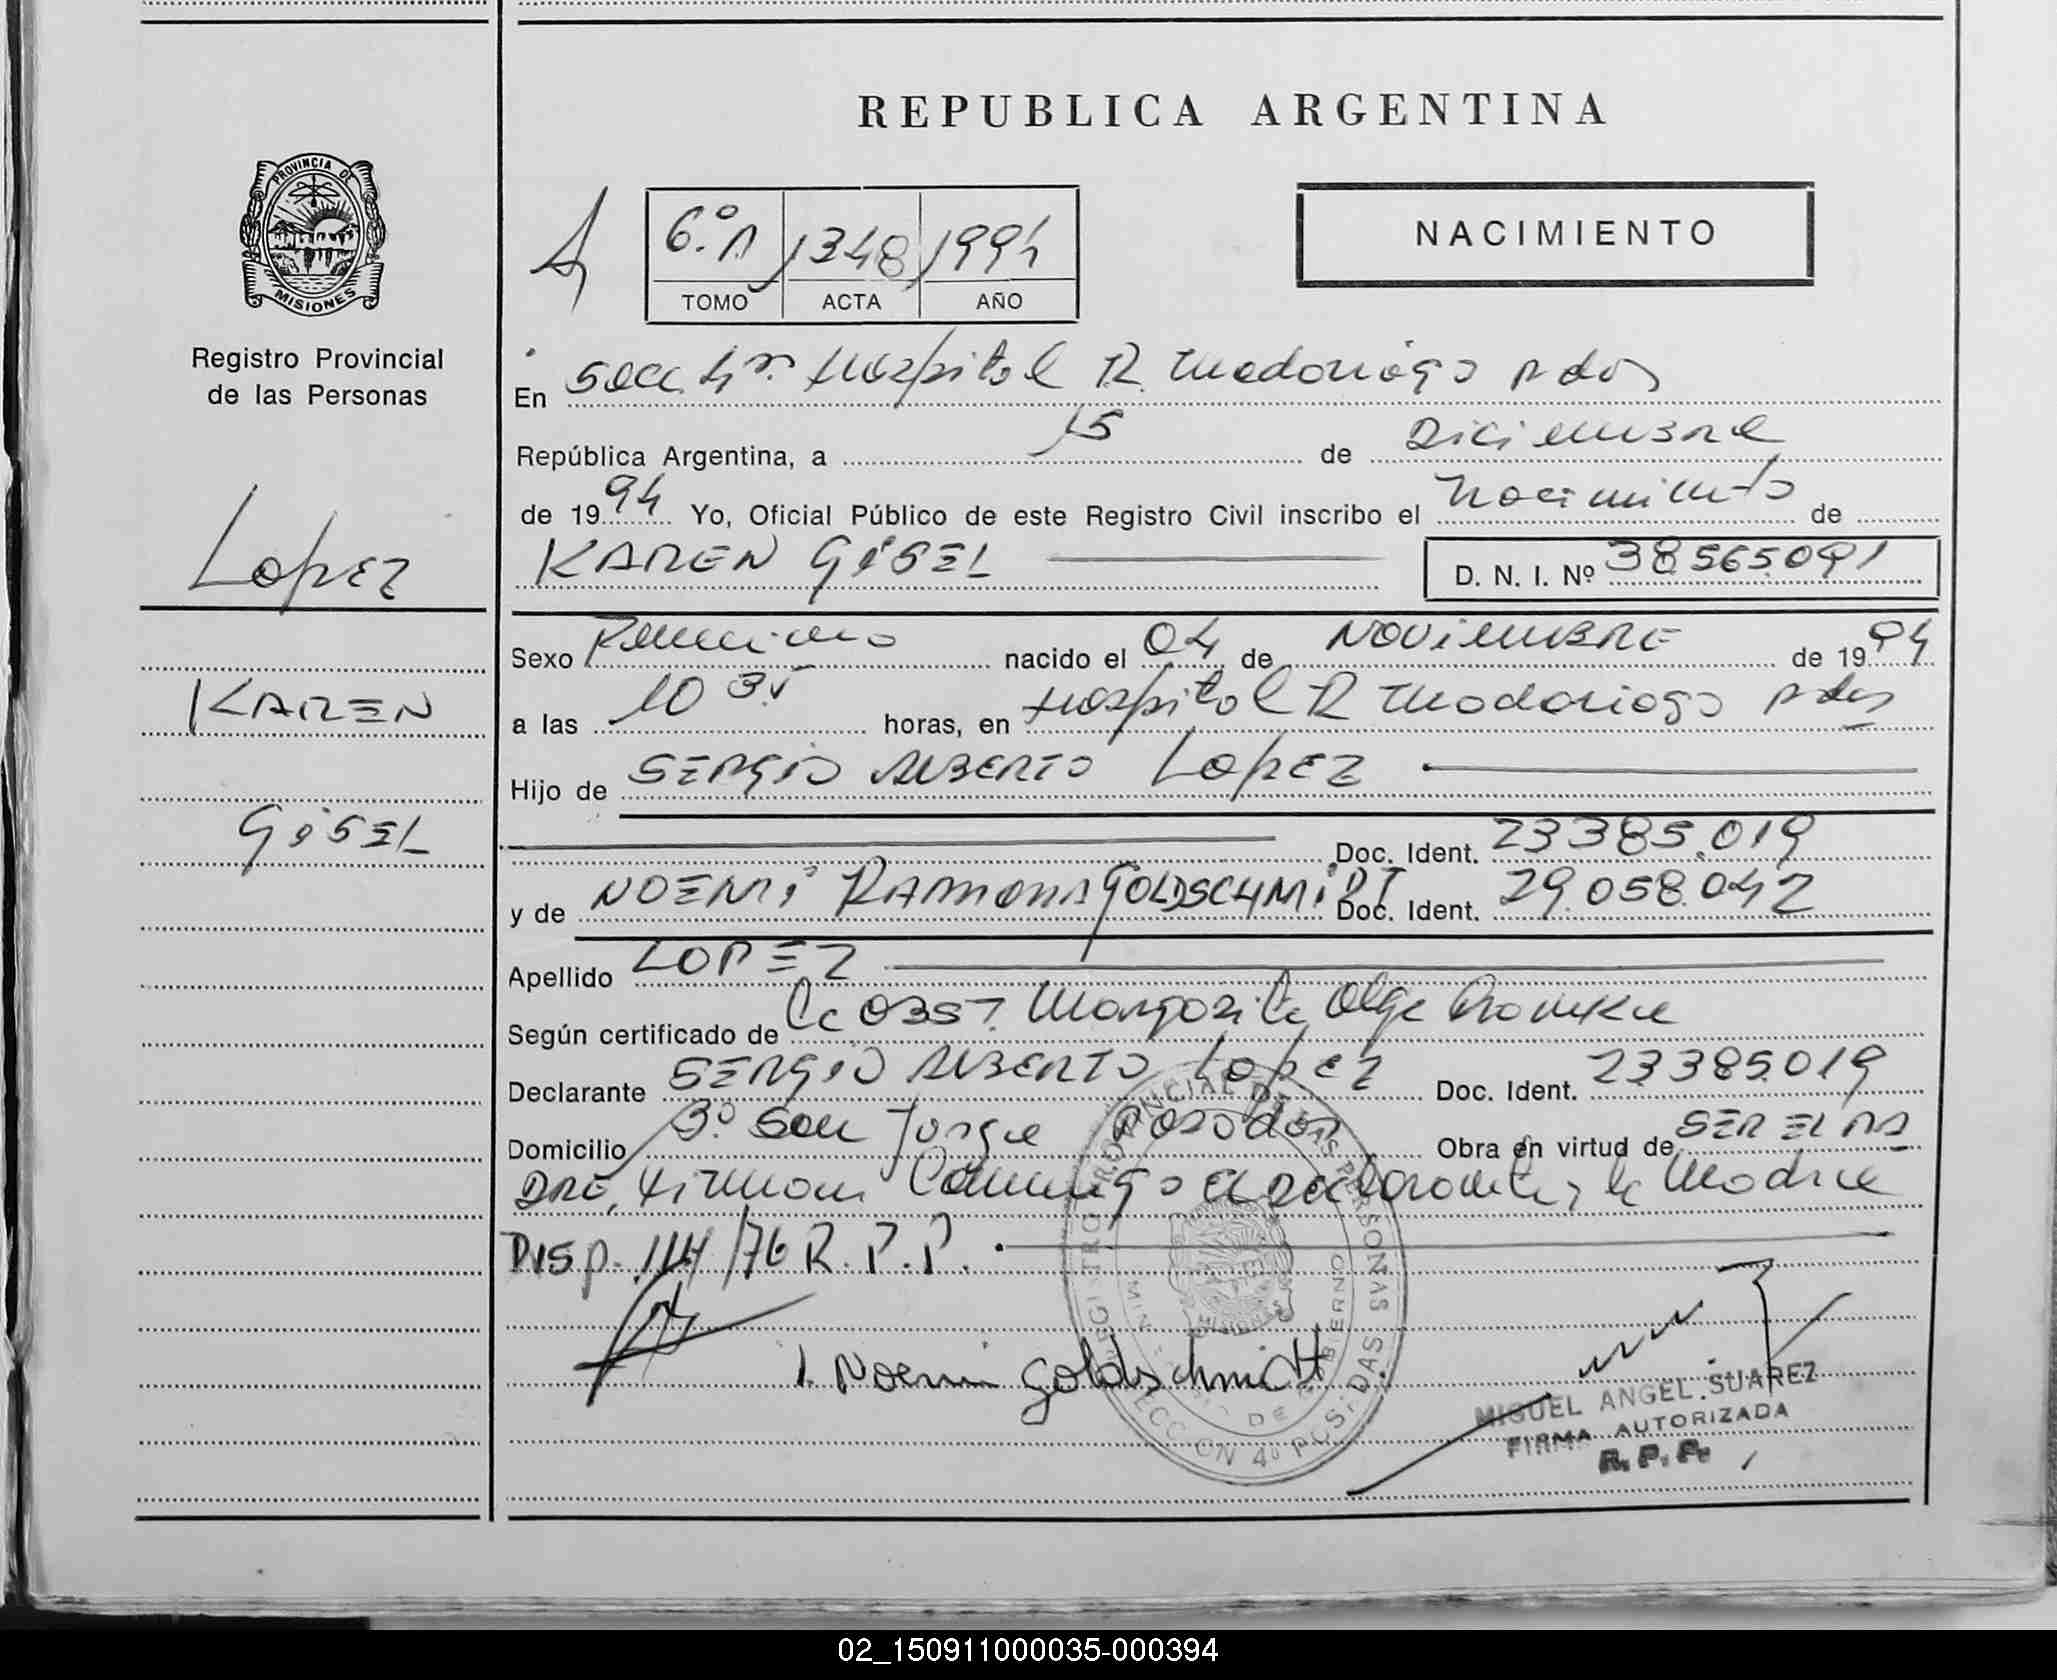 REPUBLICA ARGENTINA
PROVINCIA DE
MISIONES
Registro Provincial
de las Personas
6.º A 1348 1994
TOMO ACTA AÑO
NACIMIENTO
En Secc 4ª. Hospital R. Madariaga Pdas
República Argentina, a 15 de Diciembre
de 1994 Yo, Oficial Público de este Registro Civil inscribo el Nacimiento de
KAREN GISEL D. N. I. Nº 38565.091
Lopez
KAREN
GISEL
Sexo Femenino nacido el 04 de NOVIEMBRE de 1994
a las 10 35 horas, en Hospital R Madariaga Pdas
Hijo de SERGIO ALBERTO LOPEZ
Doc. Ident. 23385.019
y de NOEMI RAMONA GOLDSCHMIDT Doc. Ident. 29.058.042
Apellido LOPEZ
Según certificado de la OBST. Margarita Olga
Declarante SERGIO ALBERTO Lopez Doc. Ident. 23385019
Domicilio Bº San Jorge Posadas Obra en virtud de SER EL PA
DRE, Firman Conmigo el declarante y la Madre
DISP. 114/76 R.P.P.
Noemi Goldschmidt
REGISTRO PROVINCIAL DE LAS PERSONAS
MINISTERIO DE GOBIERNO
SECCION 4º POSADAS
MIGUEL ANGEL SUAREZ
FIRMA AUTORIZADA
R.P.P.
02_150911000035-000394